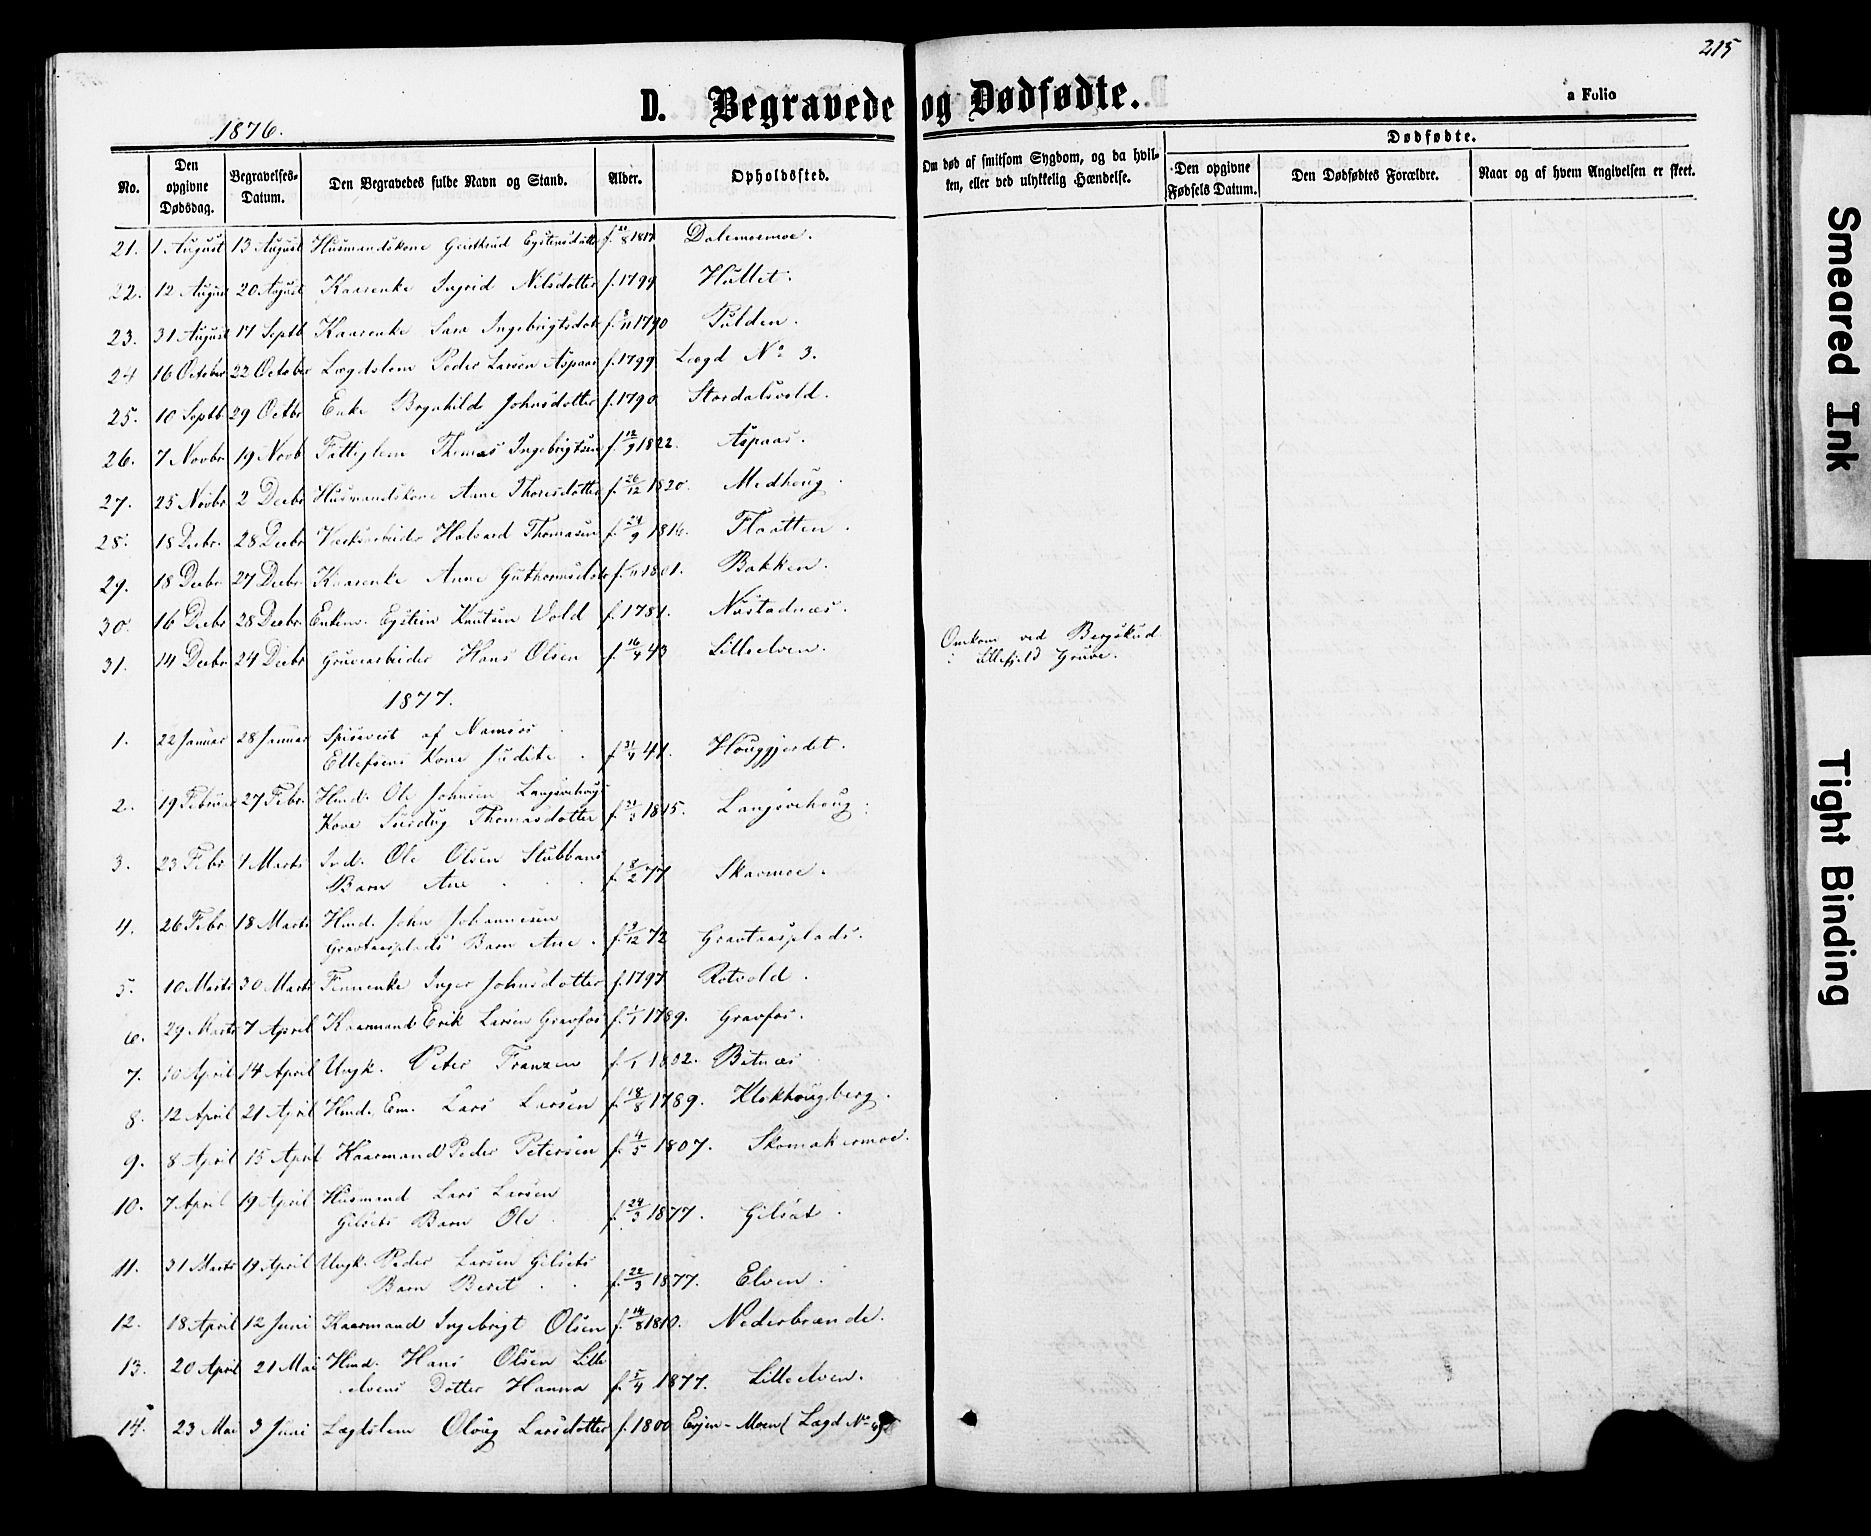 215
D. Begravede og Dødfødte.
a Folio
1876.
No.
Den opgivne Dødsdag.
Begravelses-Datum.
Den Begravedes fulde Navn og Stand.
Alder.
Opholdssted.
Om død af smitsom Sygdom, og da hvil-
ken, eller ved ulykkelig Hændelse.
Dødfødte.
Den opgivne Fødsels Datum.
Den Dødfødtes Forældre.
Naar og af hvem Angivelsen er skeet.
21. 1 August 13 August Husmandskone Eystensdatter Dalemosmoe.
22. 12 August 20 August Kaarenke Ingrid Nilsdotter f. 1799 Hullet.
23. 31 August 17 Septb Kaarenke Sara Ingebrigtsdot 1790 Pulden.
24 16 October 22 October Lægdslem Peder Larsen Aspaas f. 1799 Lægd No 3.
25. 10 Septb 29 Octbr Enke Brynhild Johnsdotter f. 1790. Stordalsvold.
26. 7 Novbr 19 Novb Fattiglem Thomas Ingebrigtsen f. 12/9 1822. Aspaas.
27. 25 Novbr 2 Decbr Husmandskone Ane Thoresdotter f. 26/12 1820. Medhoug.
28. 18 Decbr. 28 Decbr Halvard Thomasen f. 24/9 1816. Flaatten.
29. 18 Decbr 27 Decbr Kaarenke Anne 1801. Bakken.
30. 16 Decbr 28 Decbr. Enkem. Eystein Knutsen Vold f. 1781. Nustadnæs.
31. 14 Decbr 24 Decbr Grubearbeider Hans Olsen f. 16/4 43 Lilleelven. Omkom ved Bergskud
i Lillefjeld Grube.
1877.
1. 22 Januar 28 Januar af Namsos
Ellefsens Kone Judite f. 31/4 41. Houggjerdet.
2. 19 Februar 27 Febr. Hmd. Ole Johnsen
Kone Thomasdotter f. 21/3 1815. Langsvehoug.
3. 23 Febr 4 Marts Ind. Ole Olsen Stubbans
Barn Ane f. 8/2 77 Skarmoe.
4. 26 Febr 18 Marts Hmd. John Johannesen
Gravtaasplads Barn Ane. f. 9/12 72 Gravtaasplads.
5. 10 Marts 30 Marts Finnenke Inger Johnsdotter f. 1797 Rotvold.
6. 29 Marts 7 April Kaarmand Erik Larsen Gravfos f. 1/1 1789. Gravfos.
7. 10 April 14 April Ungk. Peter Franzen f. 1/1 1802. Bitnæs
8. 12 April 21 April Hmd. Em. Lars Larsen f. 18/8 1789. Klokhougberg.
9. 8 April 15 April Kaarmand Peder Petersen f. 4/5 1807. Skomakermoe.
10. 7 April 19 April Husmand Lars Larsen
Gilsets Barn Ole f. 24/3 1877. Gilset.
11. 31 Marts 19 April Ungk. Peder Larsen Gilsets
Barn Berit f. 22/3 1877. Elven.
12. 18 April 12 Juni Kaarmand Ingebrigt Olsen f. 14/8 1810. Nederbrænde.
13. 20 April 21 Mai Hmd. Hans Olsen Lille
elvens Dotter Hanna f. 5/4 1877. Lilleelven.
14. 23 Mai 3 Juni Lægdslem Oloug Larsdotter f. 1800 Evjen-Moen (Lægd No
Smeared Ink
Tight Binding